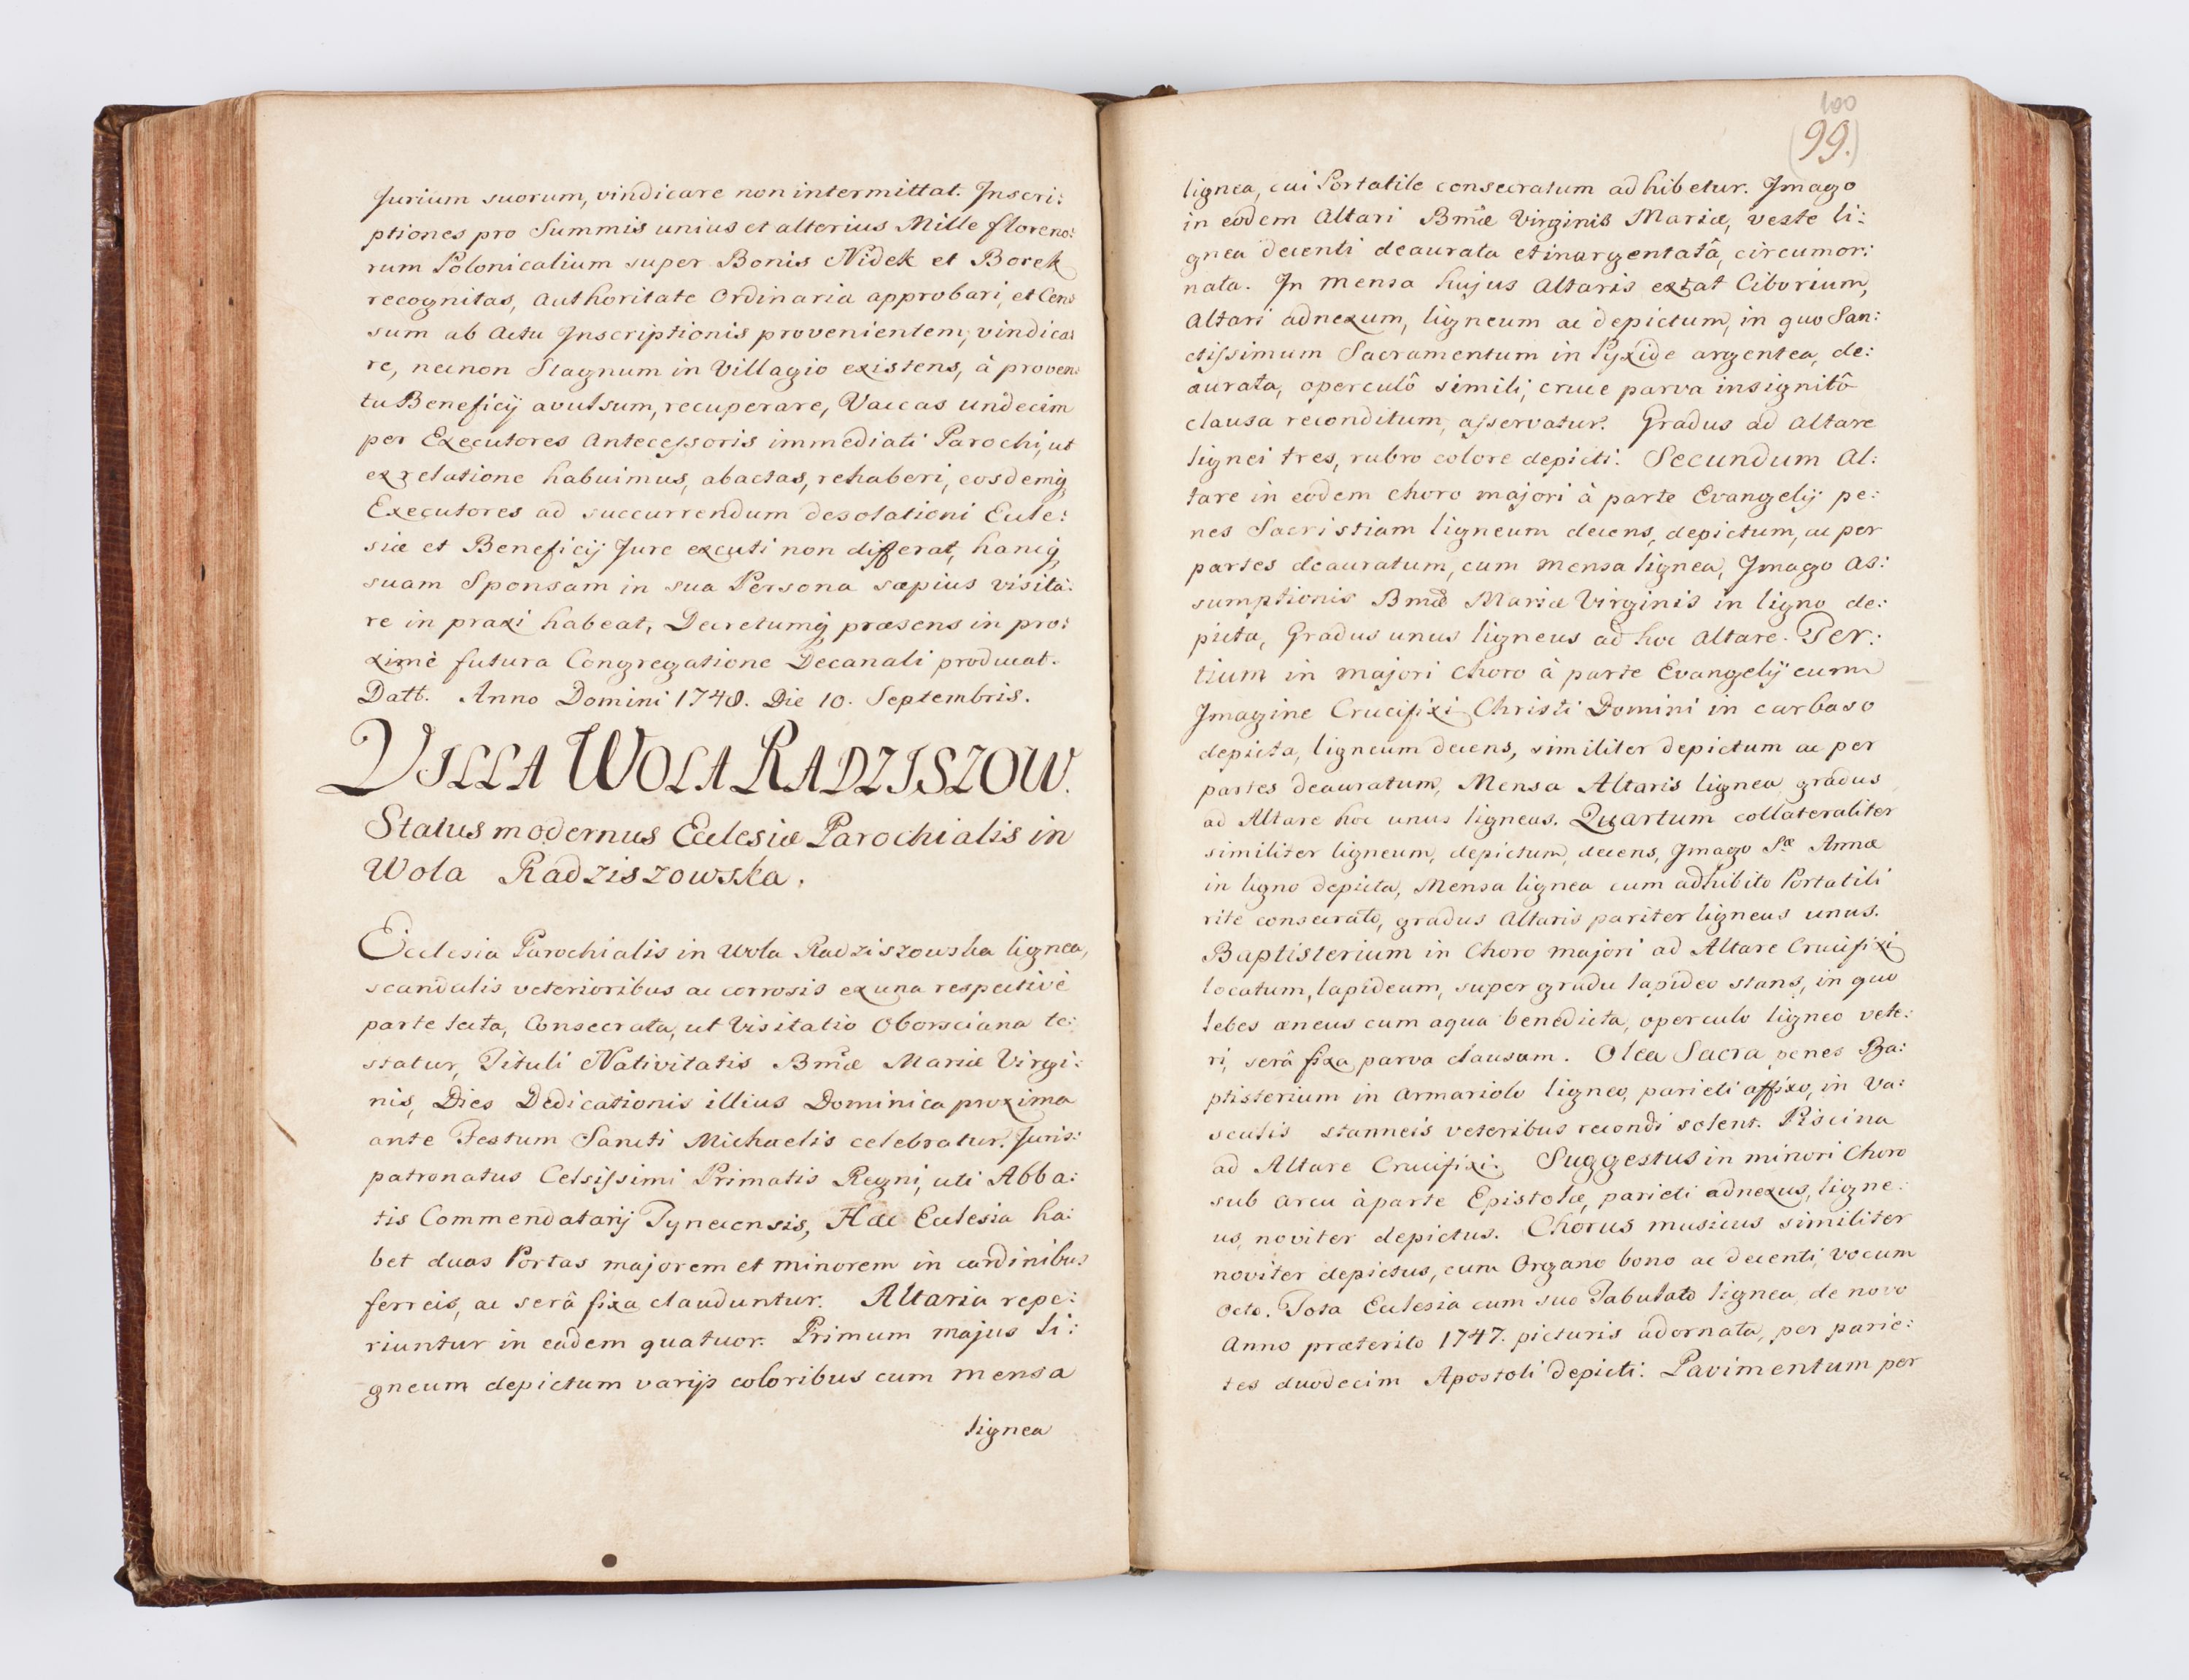 Jurium suorum, vindicare non intermittat. Inscri:
ptiones pro Summis unius et alterius Mille floreno:
rum Polonicalium super Bonis Nidek et Borek
recognitas, Authoritate Ordinaria approbari, et Cen:
sum ab Actu Inscriptionis provenientem, vindica:
re, necnon Stagnum in Villagio existens, à proven:
tu Beneficij avulsum, recuperare, Vaccas undecim
per Executores Antecessoris immediati Parochi, ut
ex relatione habuimus, abactas, rehaberi, eosdemq
Executores ad succurrendum desolationi Eccle:
siæ et Beneficij Jure excuti non differat, hancq
suam Sponsam in sua Persona sæpius visita:
re in praxi habeat, Decretumq præsens in pro:
ximè futura Congregatione Decanali producat.
Datt. Anno Domini 1748. Die 10. Septembris.
VILLA WOLA RADZISZOW.
Status modernus Ecclesiæ Parochialis in
Wola Radziszowska.
Ecclesia Parochialis in Wola Radziszowska lignea,
scandulis veterioribus ac corrosis ex una respectivè
parte tecta, Consecrata, ut Visitatio Oborsciana te:
statur, Tituli Nativitatis Bmæ Mariæ Virgi:
nis, Dies Dedicationis illius Dominica proxima
ante Festum Sancti Michaelis celebratur. Juris:
patronatus Celsissimi Primatis Regni, uti Abba:
tis Commendatarij Tynecensis, Hæc Ecclesia ha:
bet duas Portas majorem et minorem in cardinibus
ferreis, ac serâ fixa clauduntur. Altaria repe:
riuntur in eadem quatuor. Primum majus li:
gneum depictum varijs coloribus cum mensa
lignea
100
(99.)
lignea, cui Portatile consecratum adhibetur. Imago
in eodem Altari Bmæ Virginis Mariæ, veste li:
gnea decenti deaurata et inargentatâ, circumor:
nata. In mensa hujus Altaris extat Ciborium,
Altari adnexum, ligneum ac depictum, in quo San:
ctissimum Sacramentum in Pyxide argentea, de:
aurata, operculô simili, cruce parva insignitô
clausa reconditum, asservatur. Gradus ad Altare
lignei tres, rubro colore depicti. Secundum Al:
tare in eodem choro majori à parte Evangelij pe:
nes Sacristiam ligneum decens, depictum, ac per
partes deauratum, cum mensa lignea, Imago As:
sumptionis Bmæ Mariæ Virginis in ligno de:
picta, Gradus unus ligneus ad hoc Altare. Ter:
tium in majori Choro à parte Evangelij cum
Imagine Crucifixi Christi Domini in carbaso
depicta, ligneum decens, similiter depictum ac per
partes deauratum, Mensa Altaris lignea, gradus
ad Altare hoc unus ligneus. Quartum collateraliter
similiter ligneum, depictum, decens, Imago Sæ Annæ
in ligno depicta, Mensa lignea cum adhibito Portatili
rite consecrato, gradus Altaris pariter ligneus unus.
Baptisterium in Choro majori ad Altare Crucifixi
locatum, lapideum, super gradu lapideo stans, in quo
lebes æneus cum aqua benedicta, operculo ligneo vete:
ri, serâ fixa parva clausam. Olea Sacra penes Ba:
ptisterium in Armariolo ligneo, parieti affixo, in Va:
sculis stanneis veteribus recondi solent. Piscina
ad Altare Crucifixi. Suggestus in minori Choro
sub Arcu à parte Epistolæ, parieti adnexus, ligne:
us, noviter depictus. Chorus musicus similiter
noviter depictus, cum Organo bono ac decenti, vocum
octo. Tota Ecclesia cum suo Tabulato lignea, de novo
Anno præterito 1747. picturis adornata, per parie:
tes duodecim Apostoli depicti. Pavimentum per